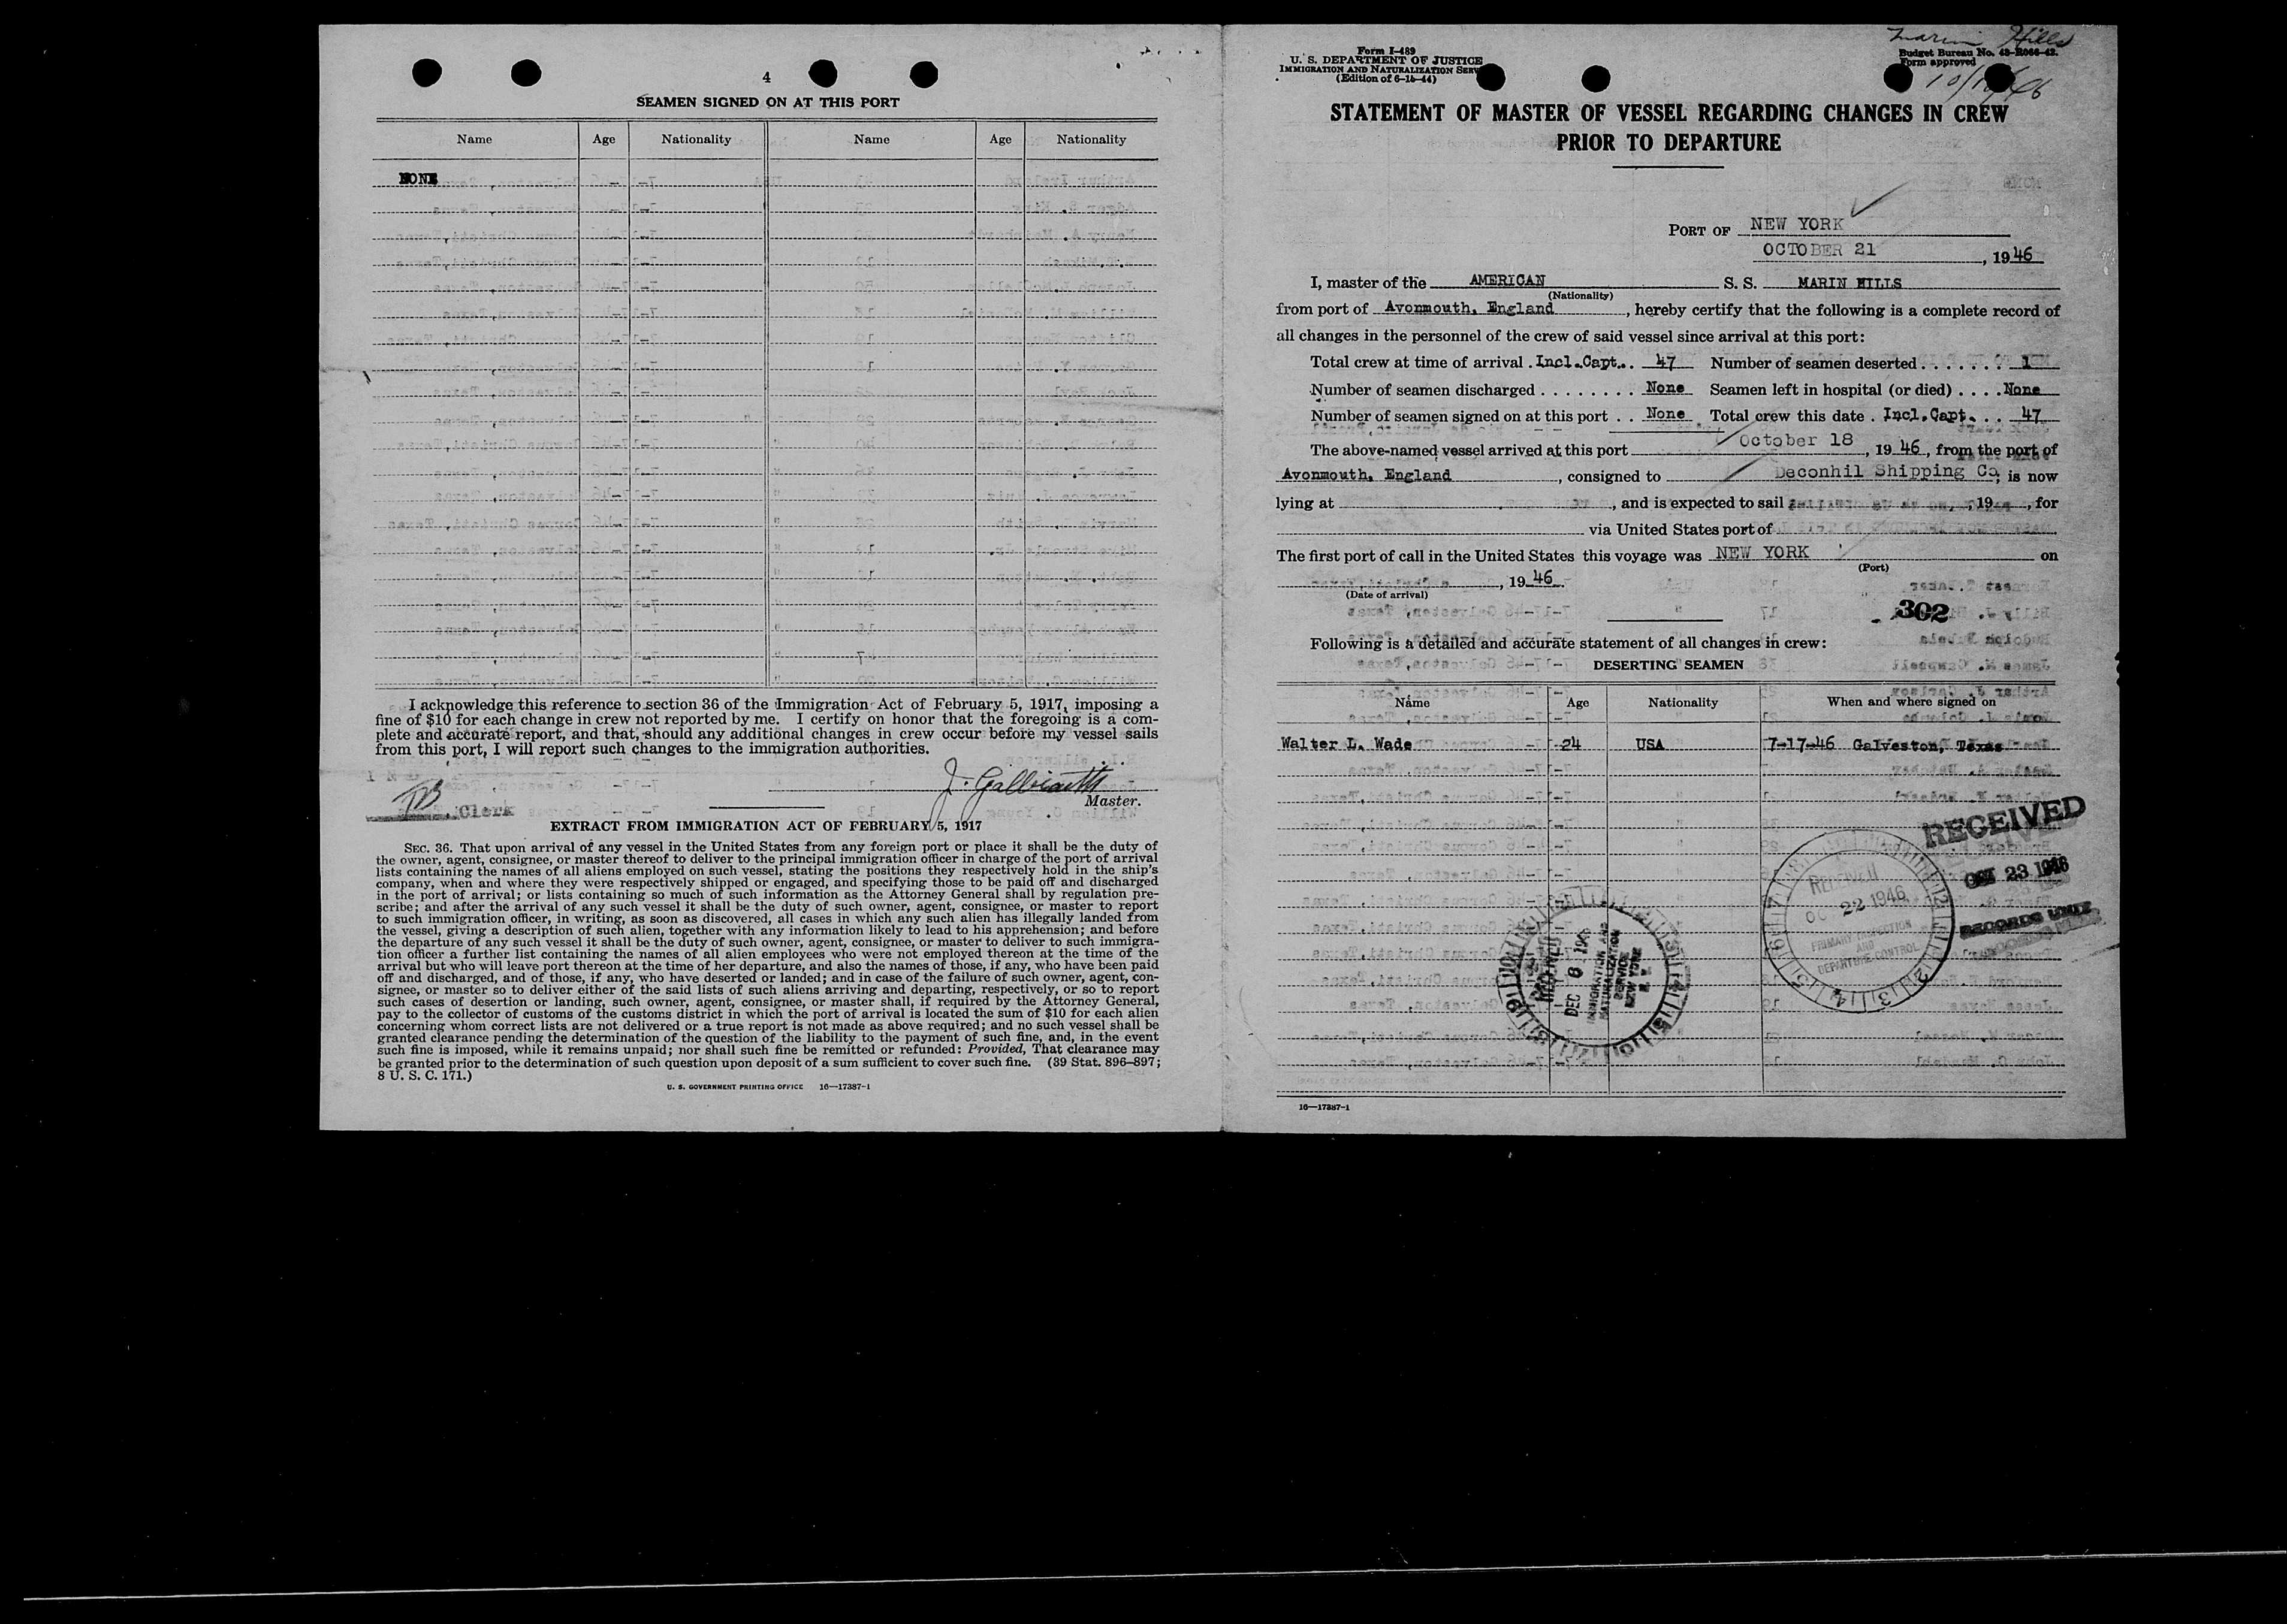 4
SEAMEN SIGNED ON AT THIS PORT
Name Age Nationality Name Age Nationality
NONE
I acknowledge this reference to section 36 of the Immigration Act of February 5, 1917, imposing a
fine of $10 for each change in crew not reported by me. I certify on honor that the foregoing is a com-
plete and accurate report, and that, should any additional changes in crew occur before my vessel sails
from this port, I will report such changes to the immigration authorities.
J. Galbraith
Master.
Clerk
EXTRACT FROM IMMIGRATION ACT OF FEBRUARY 5, 1917
SEC. 36. That upon arrival of any vessel in the United States from any foreign port or place it shall be the duty of
the owner, agent, consignee, or master thereof to deliver to the principal immigration officer in charge of the port of arrival
lists containing the names of all aliens employed on such vessel, stating the positions they respectively hold in the ship's
company, when and where they were respectively shipped or engaged, and specifying those to be paid off and discharged
in the port of arrival; or lists containing so much of such information as the Attorney General shall by regulation pre-
scribe; and after the arrival of any such vessel it shall be the duty of such owner, agent, consignee, or master to report
to such immigration officer, in writing, as soon as discovered, all cases in which any such alien has illegally landed from
the vessel, giving a description of such alien, together with any information likely to lead to his apprehension; and before
the departure of any such vessel it shall be the duty of such owner, agent, consignee, or master to deliver to such immigra-
tion officer a further list containing the names of all alien employees who were not employed thereon at the time of the
arrival but who will leave port thereon at the time of her departure, and also the names of those, if any, who have been paid
off and discharged, and of those, if any, who have deserted or landed; and in case of the failure of such owner, agent, con-
signee, or master so to deliver either of the said lists of such aliens arriving and departing, respectively, or so to report
such cases of desertion or landing, such owner, agent, consignee, or master shall, if required by the Attorney General,
pay to the collector of customs of the customs district in which the port of arrival is located the sum of $10 for each alien
concerning whom correct lists are not delivered or a true report is not made as above required; and no such vessel shall be
granted clearance pending the determination of the question of the liability to the payment of such fine, and, in the event
such fine is imposed, while it remains unpaid; nor shall such fine be remitted or refunded: Provided, That clearance may
be granted prior to the determination of such question upon deposit of a sum sufficient to cover such fine. (39 Stat. 896-897;
8 U. S. C. 171.)
U. S. GOVERNMENT PRINTING OFFICE 16—17387-1
Form I-489
U. S. DEPARTMENT OF JUSTICE
IMMIGRATION AND NATURALIZATION SERV
(Edition of 6-15-44)
Marin Hills
Budget Bureau No. 43-R066-42.
Form approved
STATEMENT OF MASTER OF VESSEL REGARDING CHANGES IN CREW
PRIOR TO DEPARTURE
PORT OF NEW YORK
OCTOBER 21, 1946
I, master of the AMERICAN S. S. MARIN HILLS
(Nationality)
from port of Avonmouth, England, hereby certify that the following is a complete record of
all changes in the personnel of the crew of said vessel since arrival at this port:
Total crew at time of arrival . Incl.Capt. . 47 Number of seamen deserted . . . . . . . 1
Number of seamen discharged . . . . . . . . None Seamen left in hospital (or died) . . . . None
Number of seamen signed on at this port . . None Total crew this date . Incl.Capt. . . 47
The above-named vessel arrived at this port October 18, 1946, from the port of
Avonmouth, England, consigned to Deconhil Shipping Co, is now
lying at , and is expected to sail , 19 , for
via United States port of
The first port of call in the United States this voyage was NEW YORK on
(Port)
, 1946
(Date of arrival)
302
Following is a detailed and accurate statement of all changes in crew:
DESERTING SEAMEN
Name Age Nationality When and where signed on
Walter L. Wade 24 USA 7-17-46 Galveston, Texas
RECEIVED
OCT 23 1946
RECORDS UNIT
RECEIVED
OC 22 1946
PRIMARY INSPECTION
AND
DEPARTURE CONTROL
RECEIVED
DEC 6 194
IMMIGRATION AND
NATURALIZATION
SERVICE
NEW YORK
N. Y.
16—17387-1